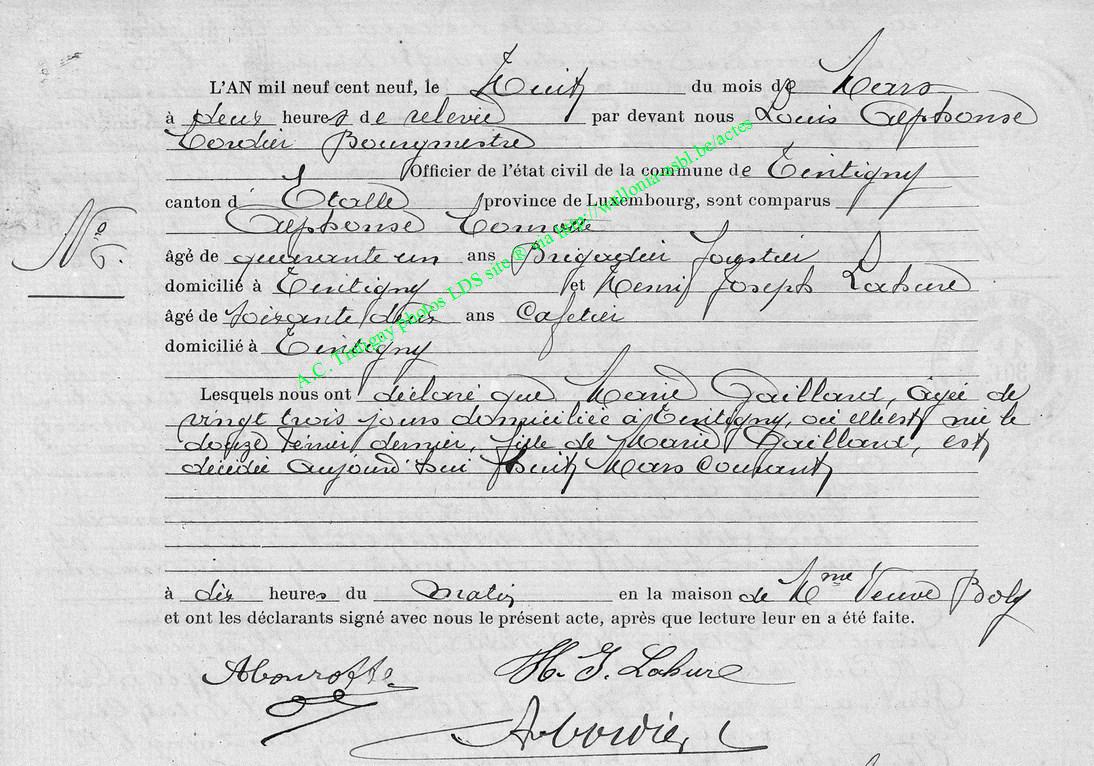 L'AN mil neuf cent neuf, le huit du mois de Mars
à deux heures de relevée par devant nous Louis Alphonse
Cordier Bourgmestre
Officier de l'état civil de la commune de Tintigny
canton d'Etalle province de Luxembourg, sont comparus
Alphonse
N° 6.
âgé de quarante un ans Brigadier forestier
domicilié à Tintigny et Henri Joseph Lahure
âgé de soixante deux ans Cafetier
domicilié à Tintigny
Lesquels nous ont déclaré que Marie Gaillard, âgée de
vingt trois jours domiciliée à Tintigny, où elle est née le
douze février dernier, fille de Marie Gaillard, est
décédée aujourd'hui huit Mars courant
à dix heures du matin en la maison de Mme Veuve Boly
et ont les déclarants signé avec nous le présent acte, après que lecture leur en a été faite.
H. J. Lahure
A. Cordier
A.C. Tintigny photos LDS site ® via http://wallonia-asbl.be/actes